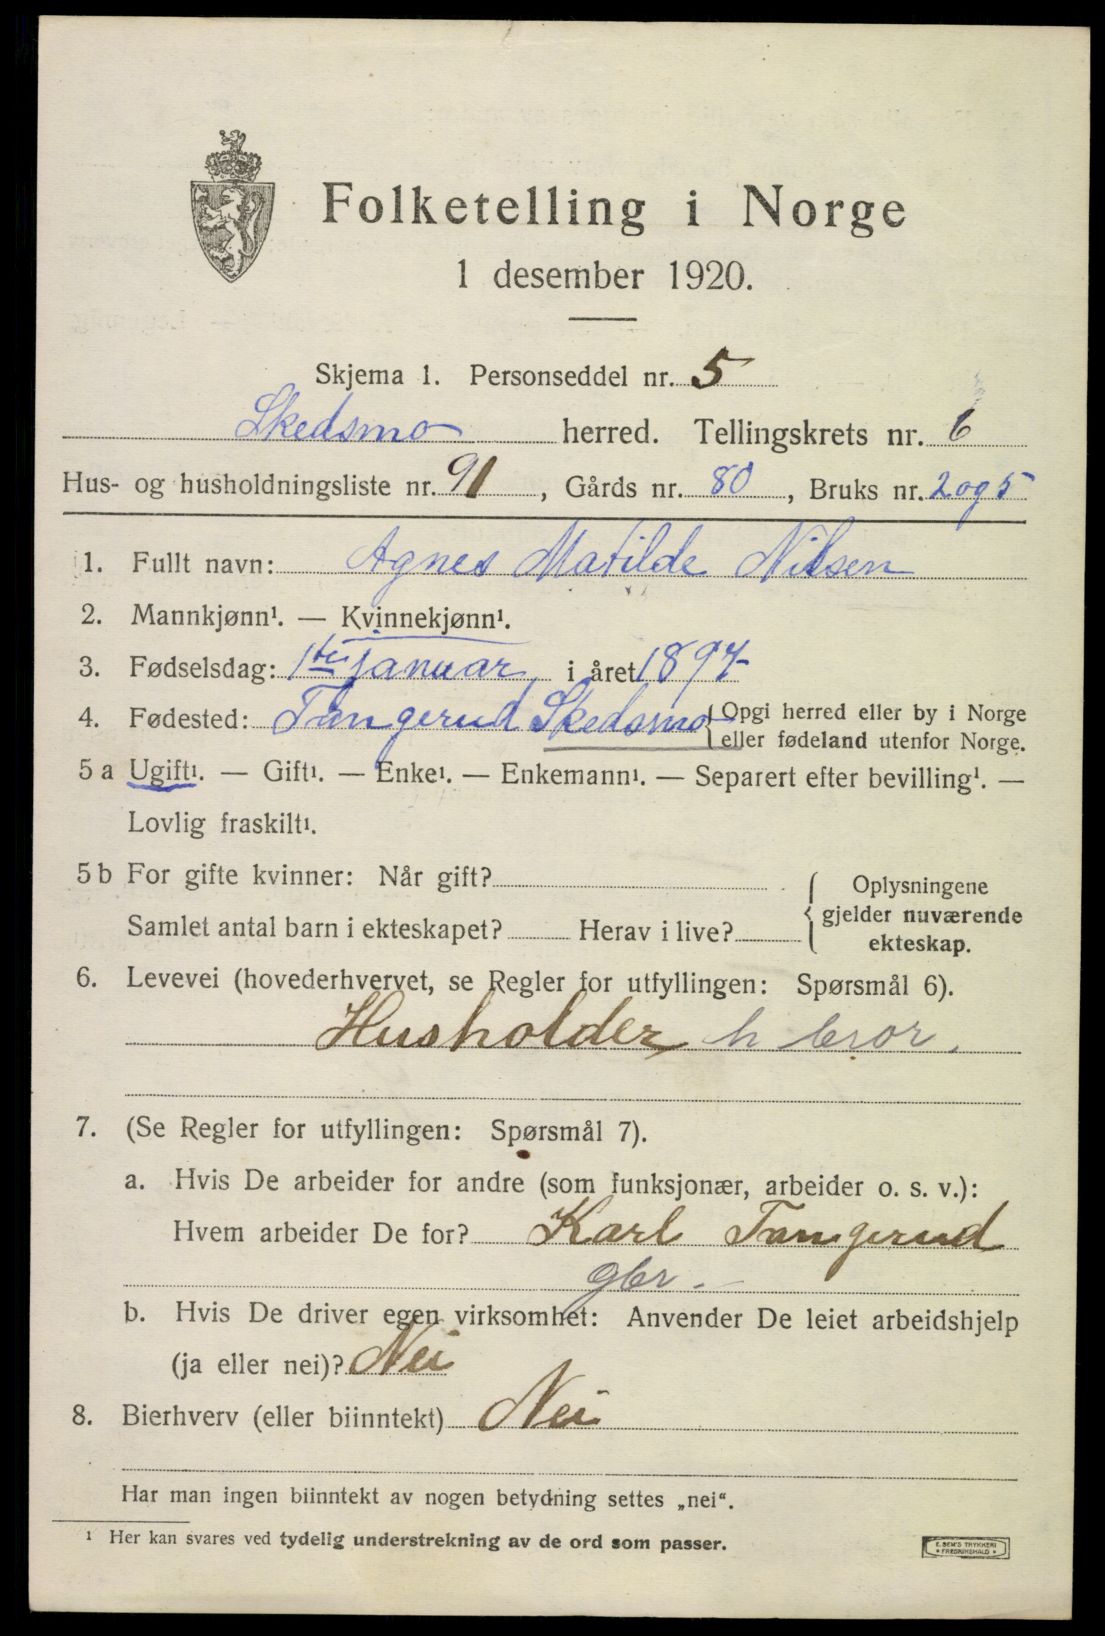 Folketelling i Norge
1 desember 1920.
Skjema 1. Personseddel nr. 5
Skedsmo herred. Tellingskrets nr. 6
Hus- og husholdningsliste nr. 91, Gårds nr. 80, Bruks nr. 2 og 5
1. Fullt navn: Agnes Matilde Nilsen
2. Mannkjønn¹. — Kvinnekjønn¹.
3. Fødselsdag: 1ste januar, i året 1897
4. Fødested: Tangerud Skedsmo { Opgi herred eller by i Norge
eller fødeland utenfor Norge.
5 a Ugift¹. — Gift¹. — Enke¹. — Enkemann¹. — Separert efter bevilling¹. —
Lovlig fraskilt¹.
5 b For gifte kvinner: Når gift?
Samlet antal barn i ekteskapet? Herav i live?
{ Oplysningene
gjelder nuværende
ekteskap.
6. Levevei (hovederhvervet, se Regler for utfyllingen: Spørsmål 6).
Husholder h bror.
7. (Se Regler for utfyllingen: Spørsmål 7).
a. Hvis De arbeider for andre (som funksjonær, arbeider o. s. v.):
Hvem arbeider De for? Karl Tangerud
gbr.
b. Hvis De driver egen virksomhet: Anvender De leiet arbeidshjelp
(ja eller nei)? Nei
8. Bierhverv (eller biinntekt) Nei
Har man ingen biinntekt av nogen betydning settes „nei“.
¹ Her kan svares ved tydelig understrekning av de ord som passer.
E. SEM'S TRYKKERI
* FREDRIKSHALD *